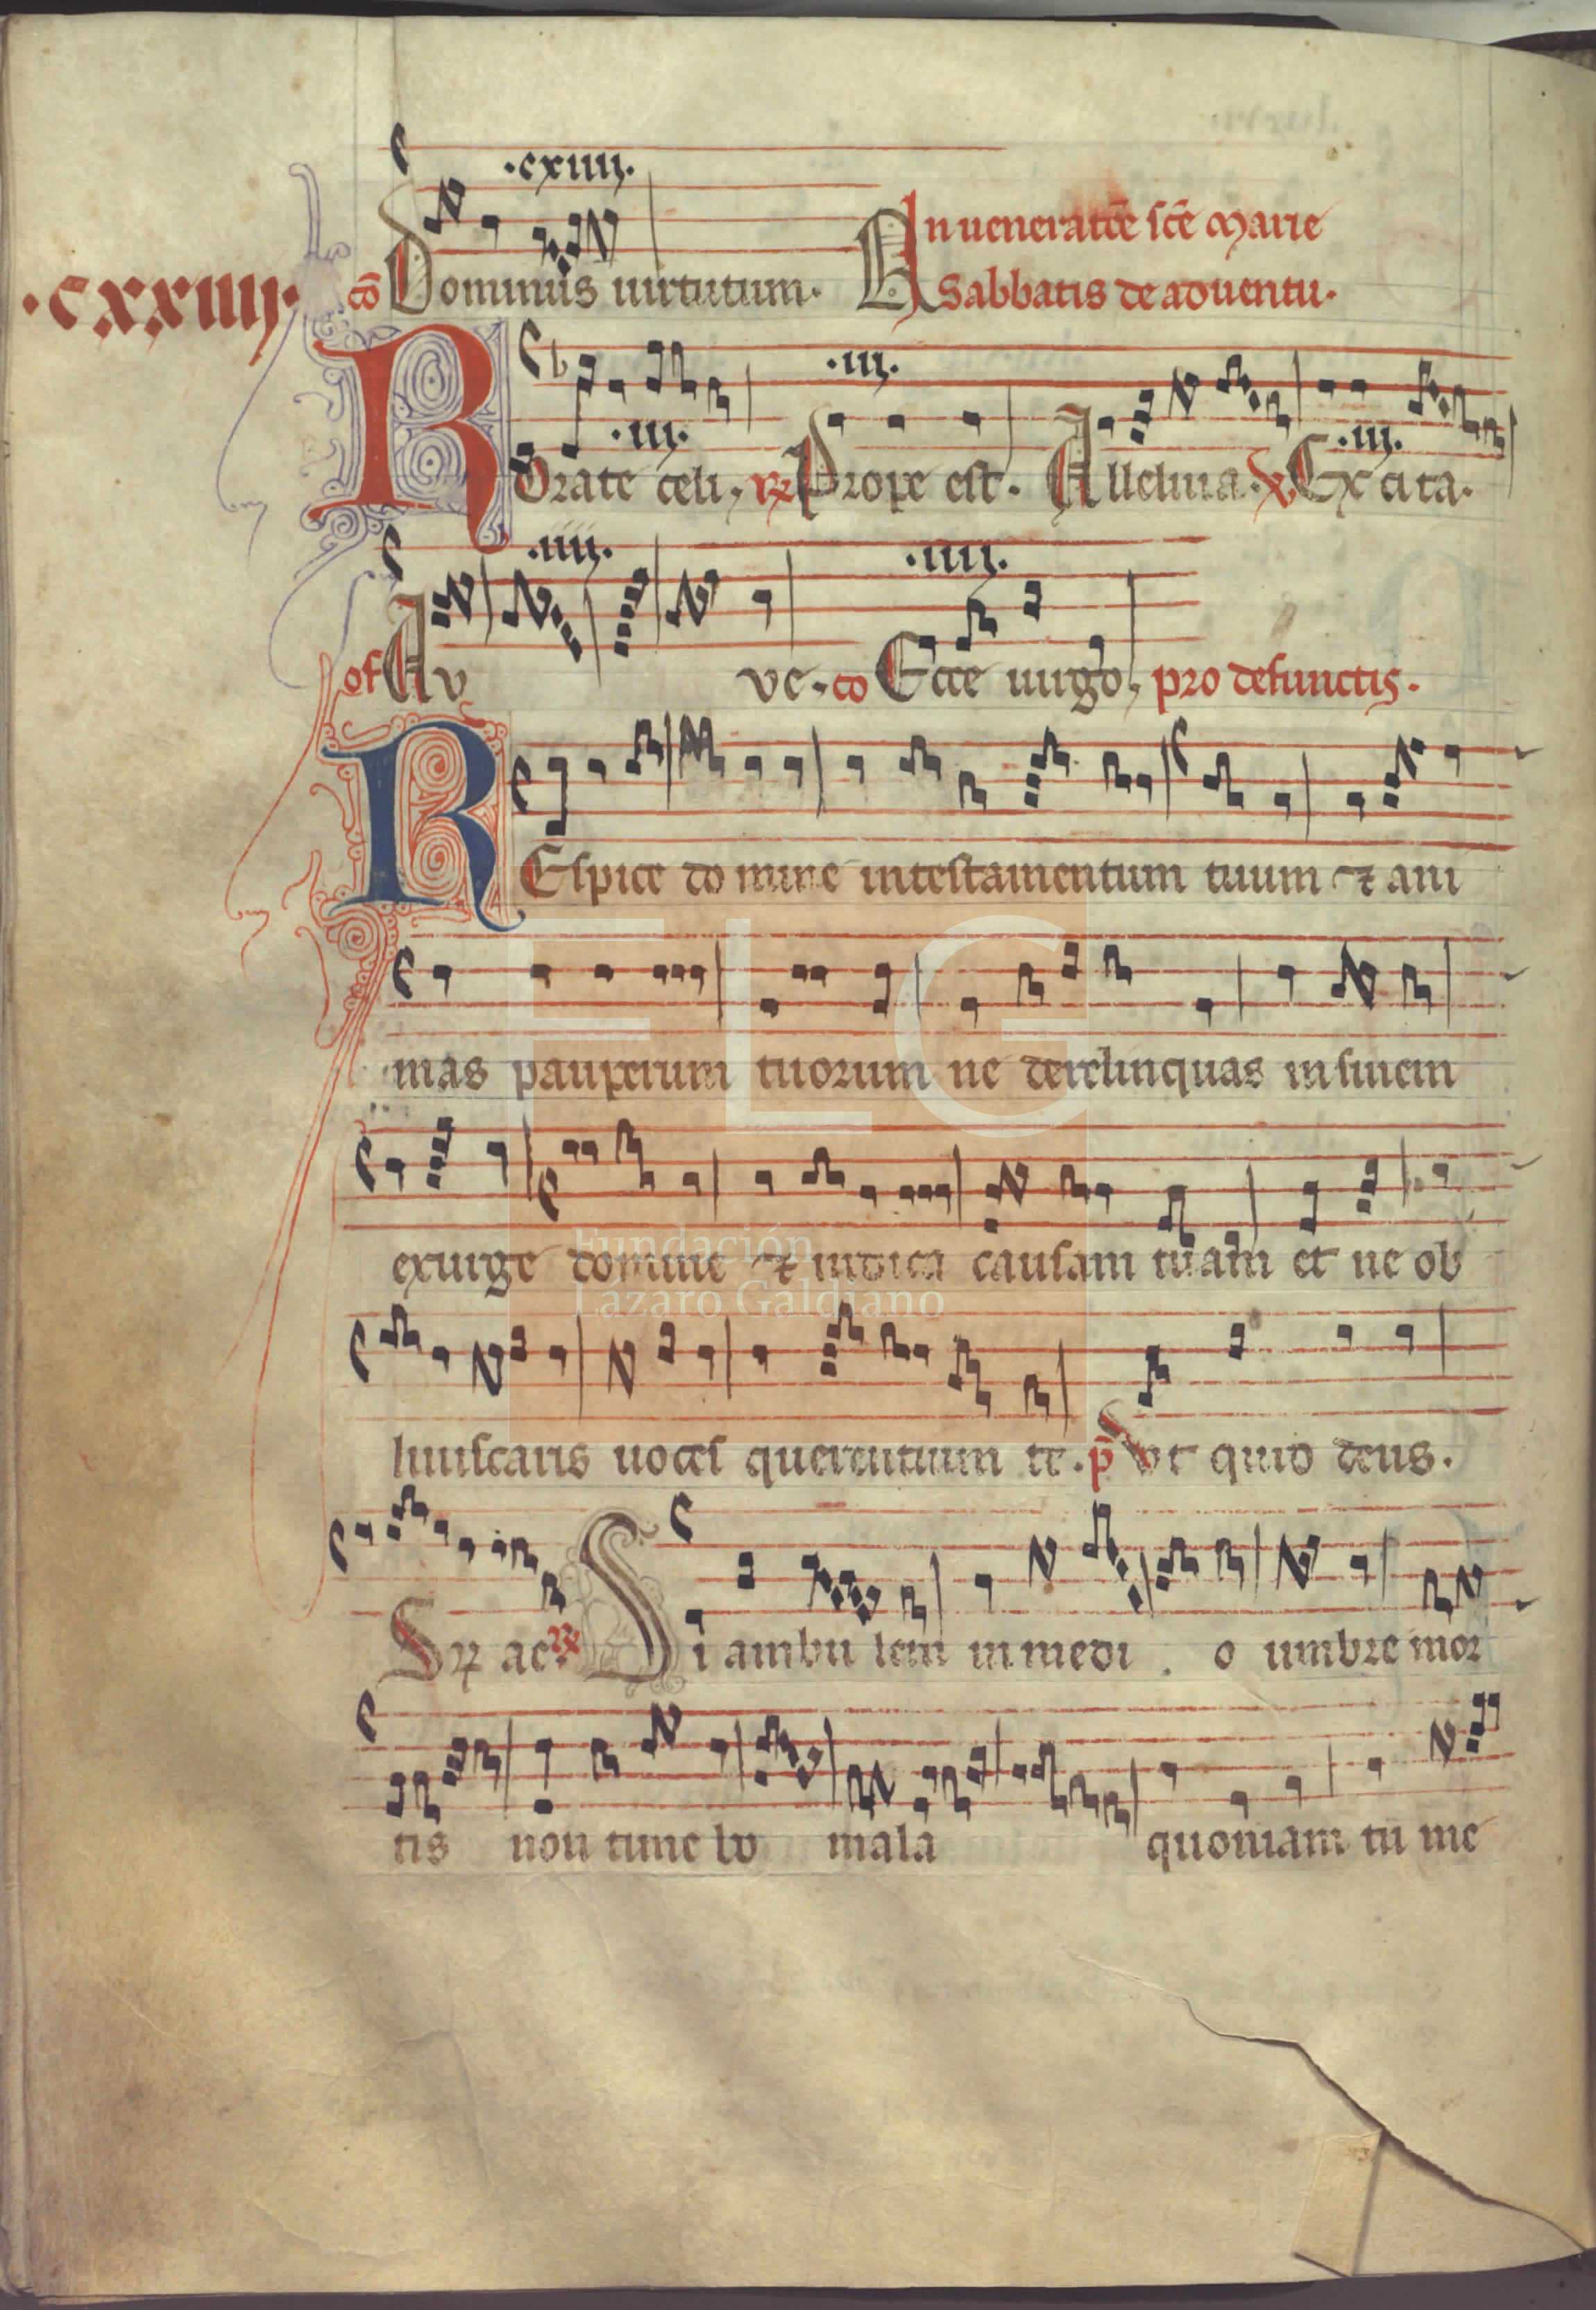 .cxiiii.
In ueneratōe scē Marie
.cxxiiii. cō Dominus uirtutum. Sabbatis de aduentu.
.iii. .iii. .iii.
Rorate celi, R Prope est. Alleluia. V Excita.
.iiii. .iiii.
of Au ve, co Ecce uirgo, pro defunctis.
REspice do mine intestamentum tuum et ani
mas pauperum tuorum ne derelinquas infinem
exurge domine et iudica causam tuam et ne ob
liuiscaris uoces querentium te. p̄ Vt quid deus.
ae R Si ambu lem inmedi o umbre mor
tis non timebo mala quoniam tu me
FLG
Fundación
Lázaro Galdiano